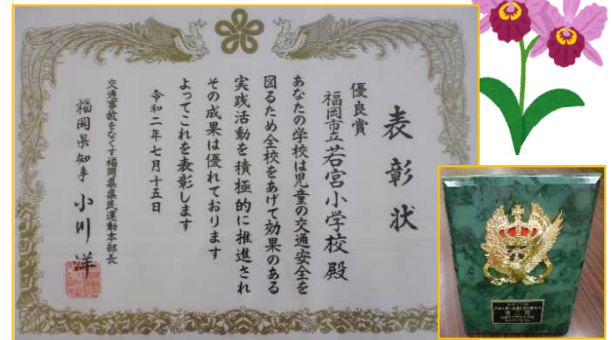 表彰状
優良賞
福岡市立若宮小学校殿
あなたの学校は児童の交通安全を
図るため全校をあげて効果のある
実践活動を積極的に推進され
その成果は優れております
よってこれを表彰します
令和二年七月十五日
交通事故をなくす福岡県県民運動本部長
福岡県知事 小川洋